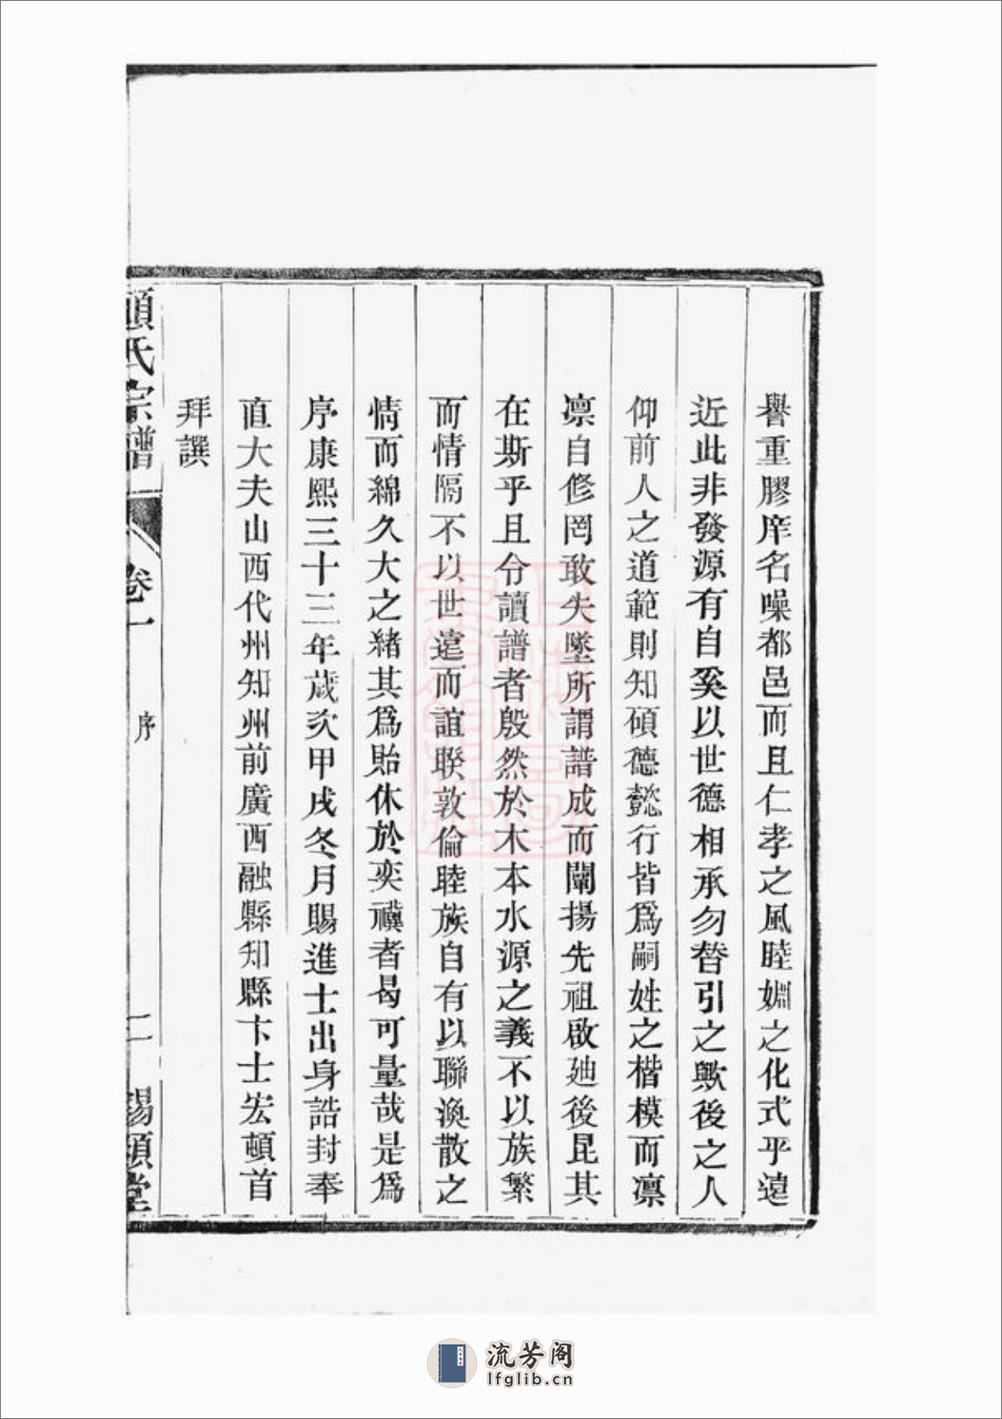 譽重膠庠名噪都邑而且仁孝之風睦婣之化式乎遠
近此非發源有自奚以世德相承勿替引之歟後之人
仰前人之道範則知碩德懿行皆爲嗣姓之楷模而凛
凛自修罔敢失墜所謂譜成而闡揚先祖啟廸後昆其
在斯乎且令讀譜者殷然於木本水源之義不以族繁
而情隔不以世遠而誼睽敦倫睦族自有以聯渙散之
情而綿久大之緒其爲貽休於奕禩者曷可量哉是爲
序康熙三十三年歲次甲戌冬月賜進士出身誥封奉
直大夫山西代州知州前廣西融縣知縣卞士宏頓首
拜譔
顧氏宗譜
卷一
序
二
錫類堂
流芳阁
lfglib.cn